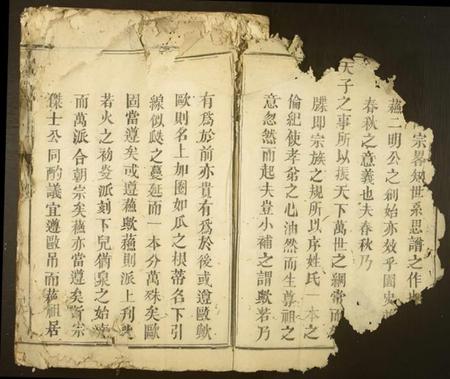 宗畧知世系思譜之作也
蘓二明公之創始亦效乎國史
春秋之意義也夫春秋乃
天子之事所以振天下萬世之綱常而
牒即宗族之規所以序姓氏一本之
倫紀使孝翁之心油然而生尊祖之
意忽然而起夫豈小補之謂歟若乃
有為於前亦貴有為於後或遵歐歟
歐則名上加圈如瓜之根蒂名下引
線似瓞之蔓延而一本分萬殊矣歐
固當遵矣或遵蘓歟蘓則派上刊
若火之初發派刻下兒猶泉之始
而萬派合朝宗矣蘓亦當遵矣宗
傑士公同酌議宜遵歐吊而蘓祖居